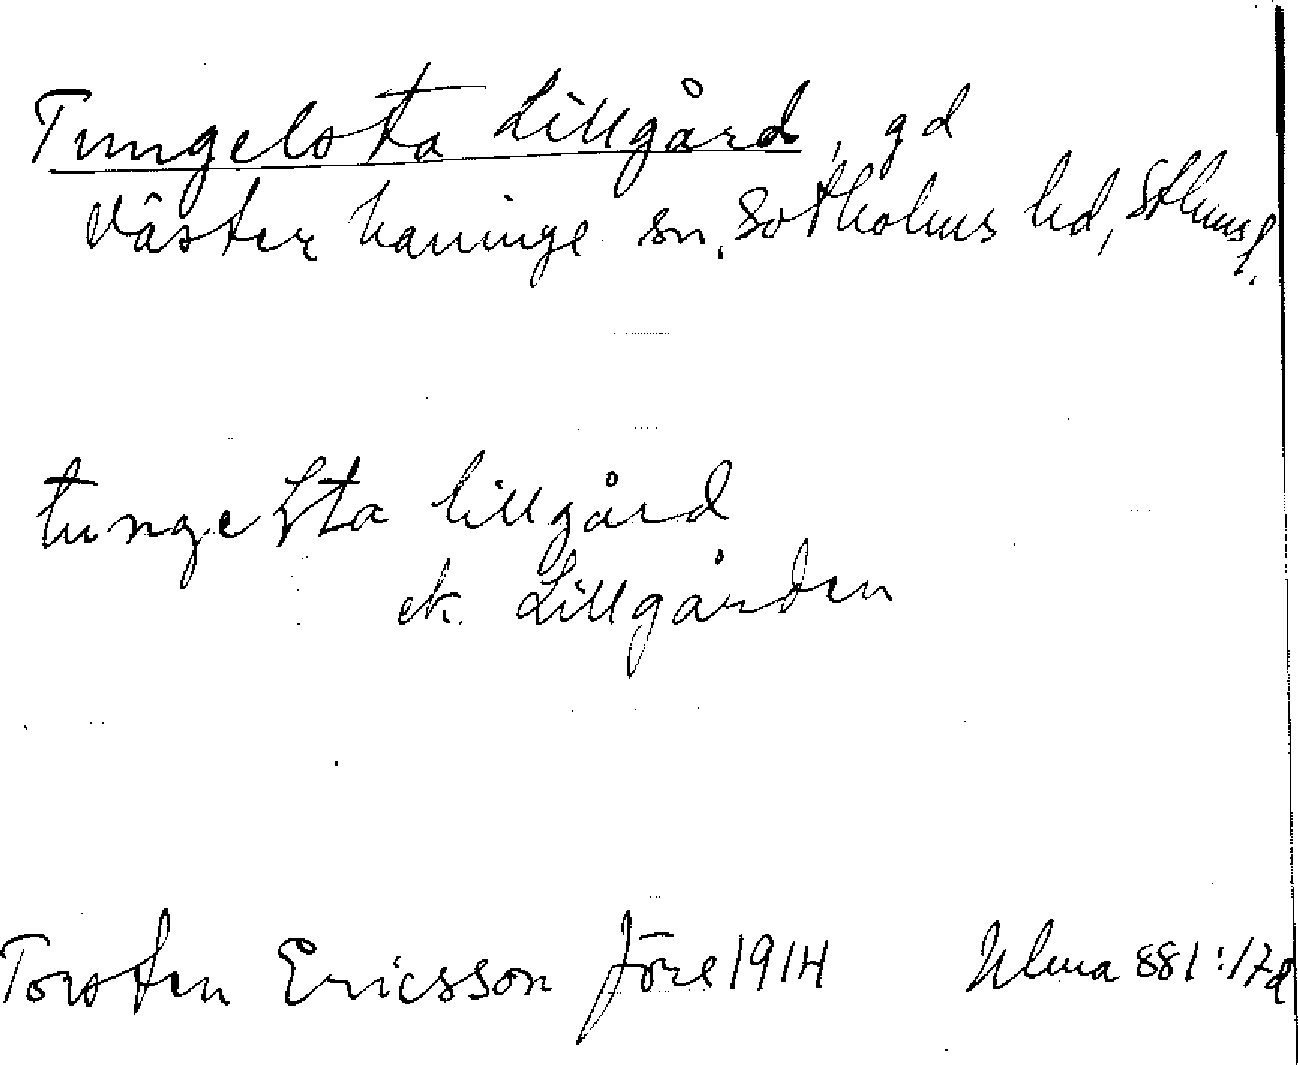 Tungelsta Lillgård, gd
Västerhaninge sn, Sotholms hd, Sthms l.
tungelsta lillgård
el. Lillgården
Torsten Ericsson före 1914 Ulma 881:17d